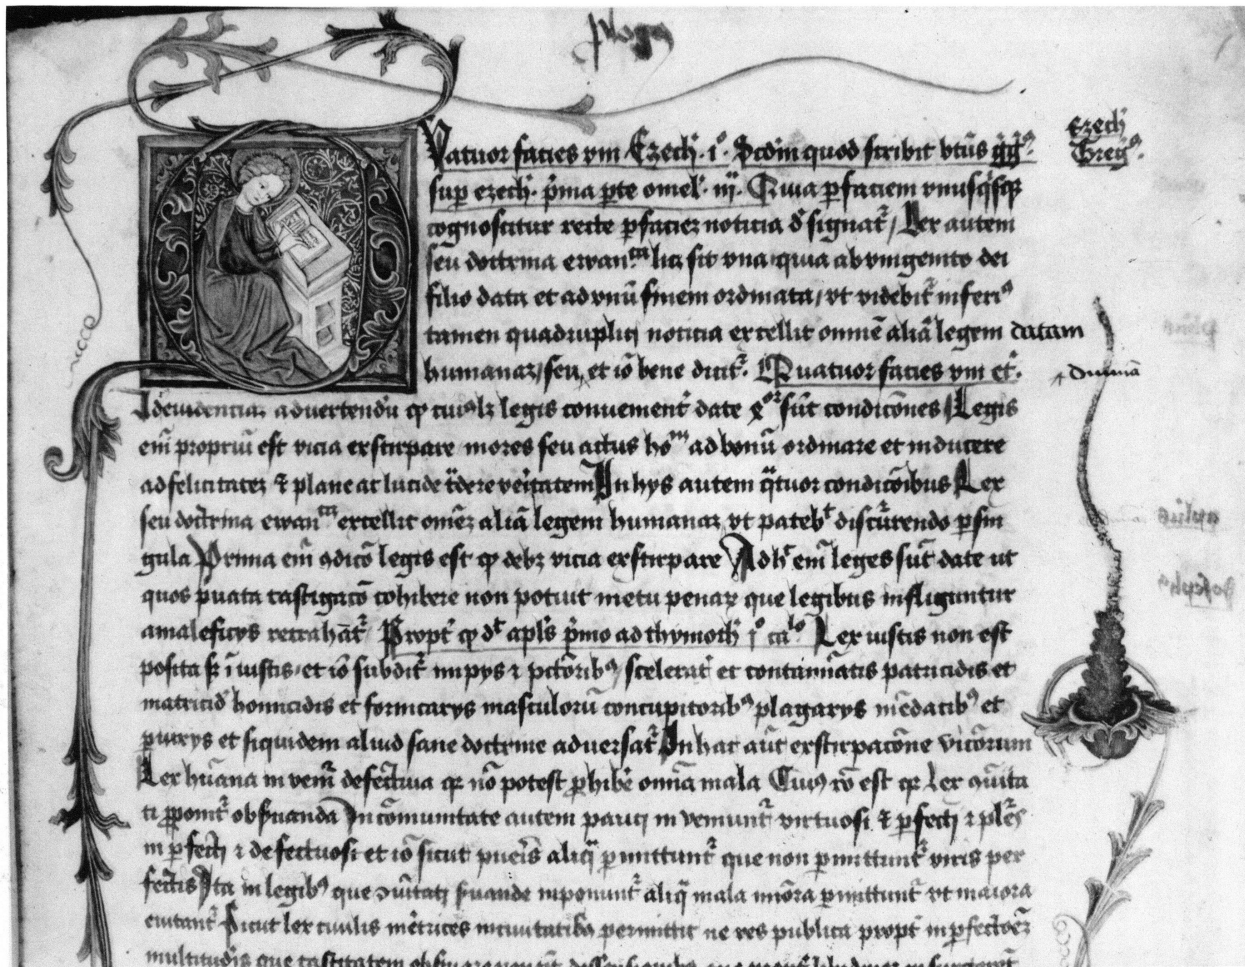 Quatuor facies vni Ezech. i°. Scdm quod scribit btus gg°
sup ezech. pma pte omel. iij. Quia p faciem vnusqsqz
cognoscitur recte p faciez noticia designat Lex autem
seu doctrina ewanca licz sit vna quia ab vnigenito dei
filio data et ad vnu finem ordinata vt videbit inferi9
tamen quadruplici noticia excellit omne alia legem datam
humanaz seu et io bene dicit. Quatuor facies vni etc.
diuina
Ezech
Greg9
Ad euidentiaz aduertendu qp cuiuslz legis conuenient date qor sut condicones Legis
eni propriu est vicia exstirpare mores seu actus hom ad bonu ordinare et inducere
ad felicitatez et plane ac lucide tdere veritatem In hys autem qtuor condicoibus Lex
seu doctrina ewanca excellit omez alia legem humanaz vt patebt discurrendo p sin
gula Prima eni 9dico legis est qp debz vicia exstirpare Ad hc eni leges sut date ut
quos puata castigaco cohibere non potuit metu penaz que legibus infliguntur
a maleficys retrahat Propt qp dt apls pmo ad thymoth i° calo Lex iustis non est
posita sz iiustis et io subdit impys et pctorib9 scelerat et contaminatis patricidis et
matricid homicidis et fornicarys masculoru concupitorib9 plagarys medacib9 et
piurys et siquidem aliud sane doctrine aduersat In hac aut exstirpacone viciorum
Lex huana inuenit defectiua qz no potest phibe omia mala Cui9 ro est qz Lex 9uita
ti pponit obseruanda In comunitate autem pauci inueniunt virtuosi et pfecti et ples
inpfecti et defectuosi et io sicut pueris aliq pmittunt que non pmittunt viris per
fectis Ita in legib9 que 9uitati seruande inponunt aliq mala miora pmittunt vt maiora
euitant Sicut lex ciuilis metrices in ciuitatibus permittit ne res publica propt inpfectoez
multitudis que castitatem obseruare